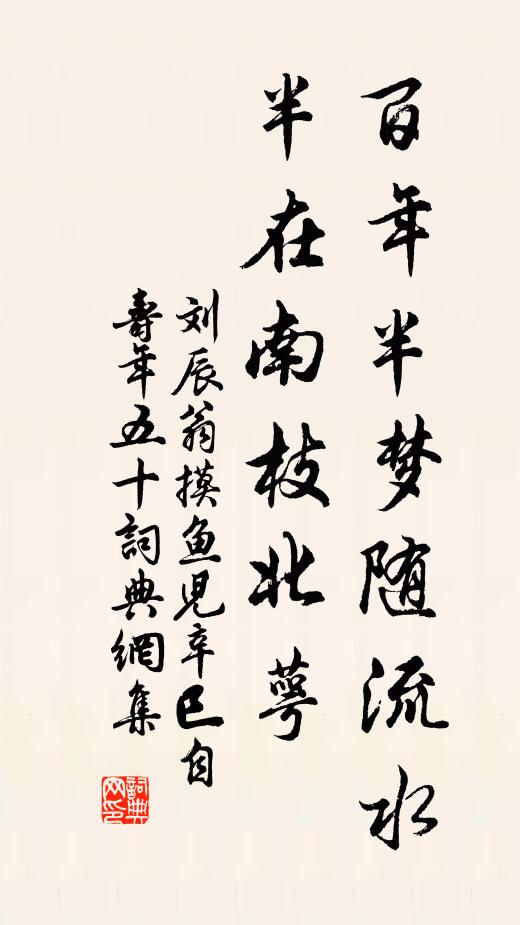 百年半梦随流水
半在南枝北萼
刘辰翁摸鱼児辛巳自
壽年五十詞典網集
詞典网印